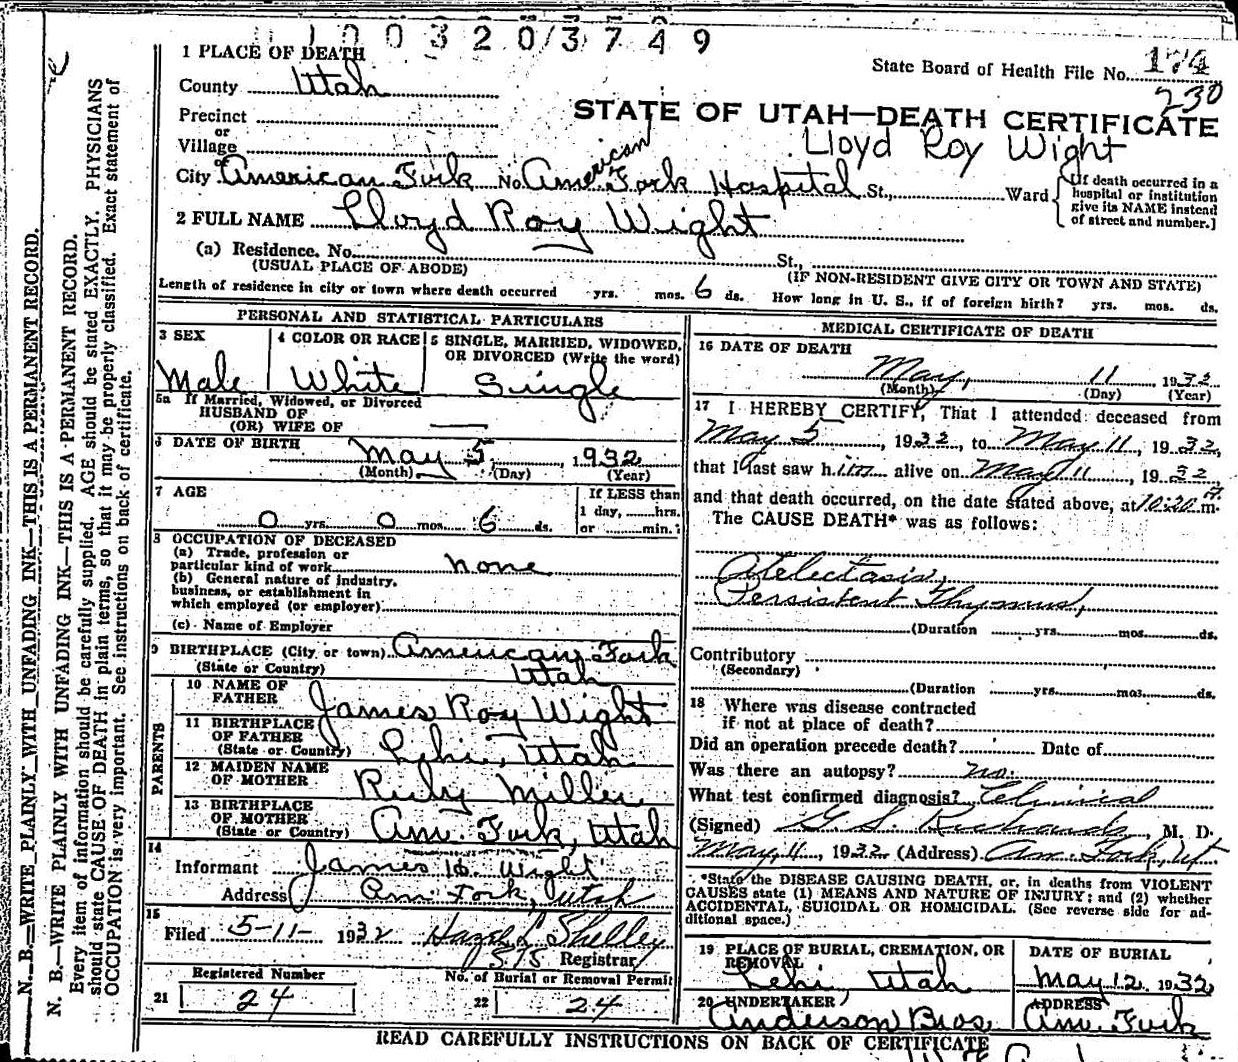 1003203749
1 PLACE OF DEATH
State Board of Health File No. 174
230
County Utah
STATE OF UTAH—DEATH CERTIFICATE
Precinct
or
Village
Lloyd Roy Wight
or
City American Fork No. American Fork Hospital St., Ward {[If death occurred in a hospital or institution give its NAME instead of street and number.]
2 FULL NAME Lloyd Roy Wight
(a) Residence. No. St.,
(USUAL PLACE OF ABODE) (IF NON-RESIDENT GIVE CITY OR TOWN AND STATE)
Length of residence in city or town where death occurred yrs. mos. 6 ds. How long in U. S., if of foreign birth? yrs. mos. ds.
PERSONAL AND STATISTICAL PARTICULARS
3 SEX
Male
4 COLOR OR RACE
White
5 SINGLE, MARRIED, WIDOWED,
OR DIVORCED (Write the word)
Single
5a If Married, Widowed, or Divorced
HUSBAND OF
(OR) WIFE OF
6 DATE OF BIRTH May 5, 1932
(Month) (Day) (Year)
7 AGE
0 yrs. 0 mos. 6 ds.
If LESS than
1 day, hrs.
or min.
8 OCCUPATION OF DECEASED
(a) Trade, profession or
particular kind of work none
(b) General nature of industry,
business, or establishment in
which employed (or employer)
(c) Name of Employer
9 BIRTHPLACE (City or town) American Fork
(State or Country) Utah
PARENTS
10 NAME OF
FATHER James Roy Wight
11 BIRTHPLACE
OF FATHER
(State or Country) Lehi, Utah
12 MAIDEN NAME
OF MOTHER Ruby Miller
13 BIRTHPLACE
OF MOTHER
(State or Country) Am. Fork, Utah
14
Informant James H. Wight
Address Am Fork, Utah
15
Filed 5-11- 1932 Hazel L Shelley
575 Registrar
Registered Number No. of Burial or Removal Permit
21 24 22 24
MEDICAL CERTIFICATE OF DEATH
16 DATE OF DEATH
May, 11, 1932
(Month) (Day) (Year)
17 I HEREBY CERTIFY, That I attended deceased from
May 5, 1932, to May 11, 1932,
that I last saw him alive on May 11, 1932,
and that death occurred, on the date stated above, at 10:20 m.
The CAUSE DEATH* was as follows:
Atelectasis,
Persistent Thymus,
(Duration yrs. mos. ds.
Contributory
(Secondary)
(Duration yrs. mos. ds.
18 Where was disease contracted
if not at place of death?
Did an operation precede death? Date of
Was there an autopsy? no.
What test confirmed diagnosis? Clinical
(Signed) G. S. Richards, M. D.
May, 11, 1932 (Address) Am. Fork, Ut
*State the DISEASE CAUSING DEATH, or, in deaths from VIOLENT
CAUSES state (1) MEANS AND NATURE OF INJURY; and (2) whether
ACCIDENTAL, SUICIDAL OR HOMICIDAL. (See reverse side for ad-
ditional space.)
19 PLACE OF BURIAL, CREMATION, OR
REMOVAL
Lehi, Utah
DATE OF BURIAL
May 12, 1932
20 UNDERTAKER
Anderson Bros
ADDRESS
Am. Fork
READ CAREFULLY INSTRUCTIONS ON BACK OF CERTIFICATE
N. B.—WRITE PLAINLY WITH UNFADING INK—THIS IS A PERMANENT RECORD.
N. B.—WRITE PLAINLY WITH UNFADING INK—THIS IS A PERMANENT RECORD.
Every item of information should be carefully supplied. AGE should be stated EXACTLY. PHYSICIANS
should state CAUSE OF DEATH in plain terms, so that it may be properly classified. Exact statement of
OCCUPATION is very important. See instructions on back of certificate.